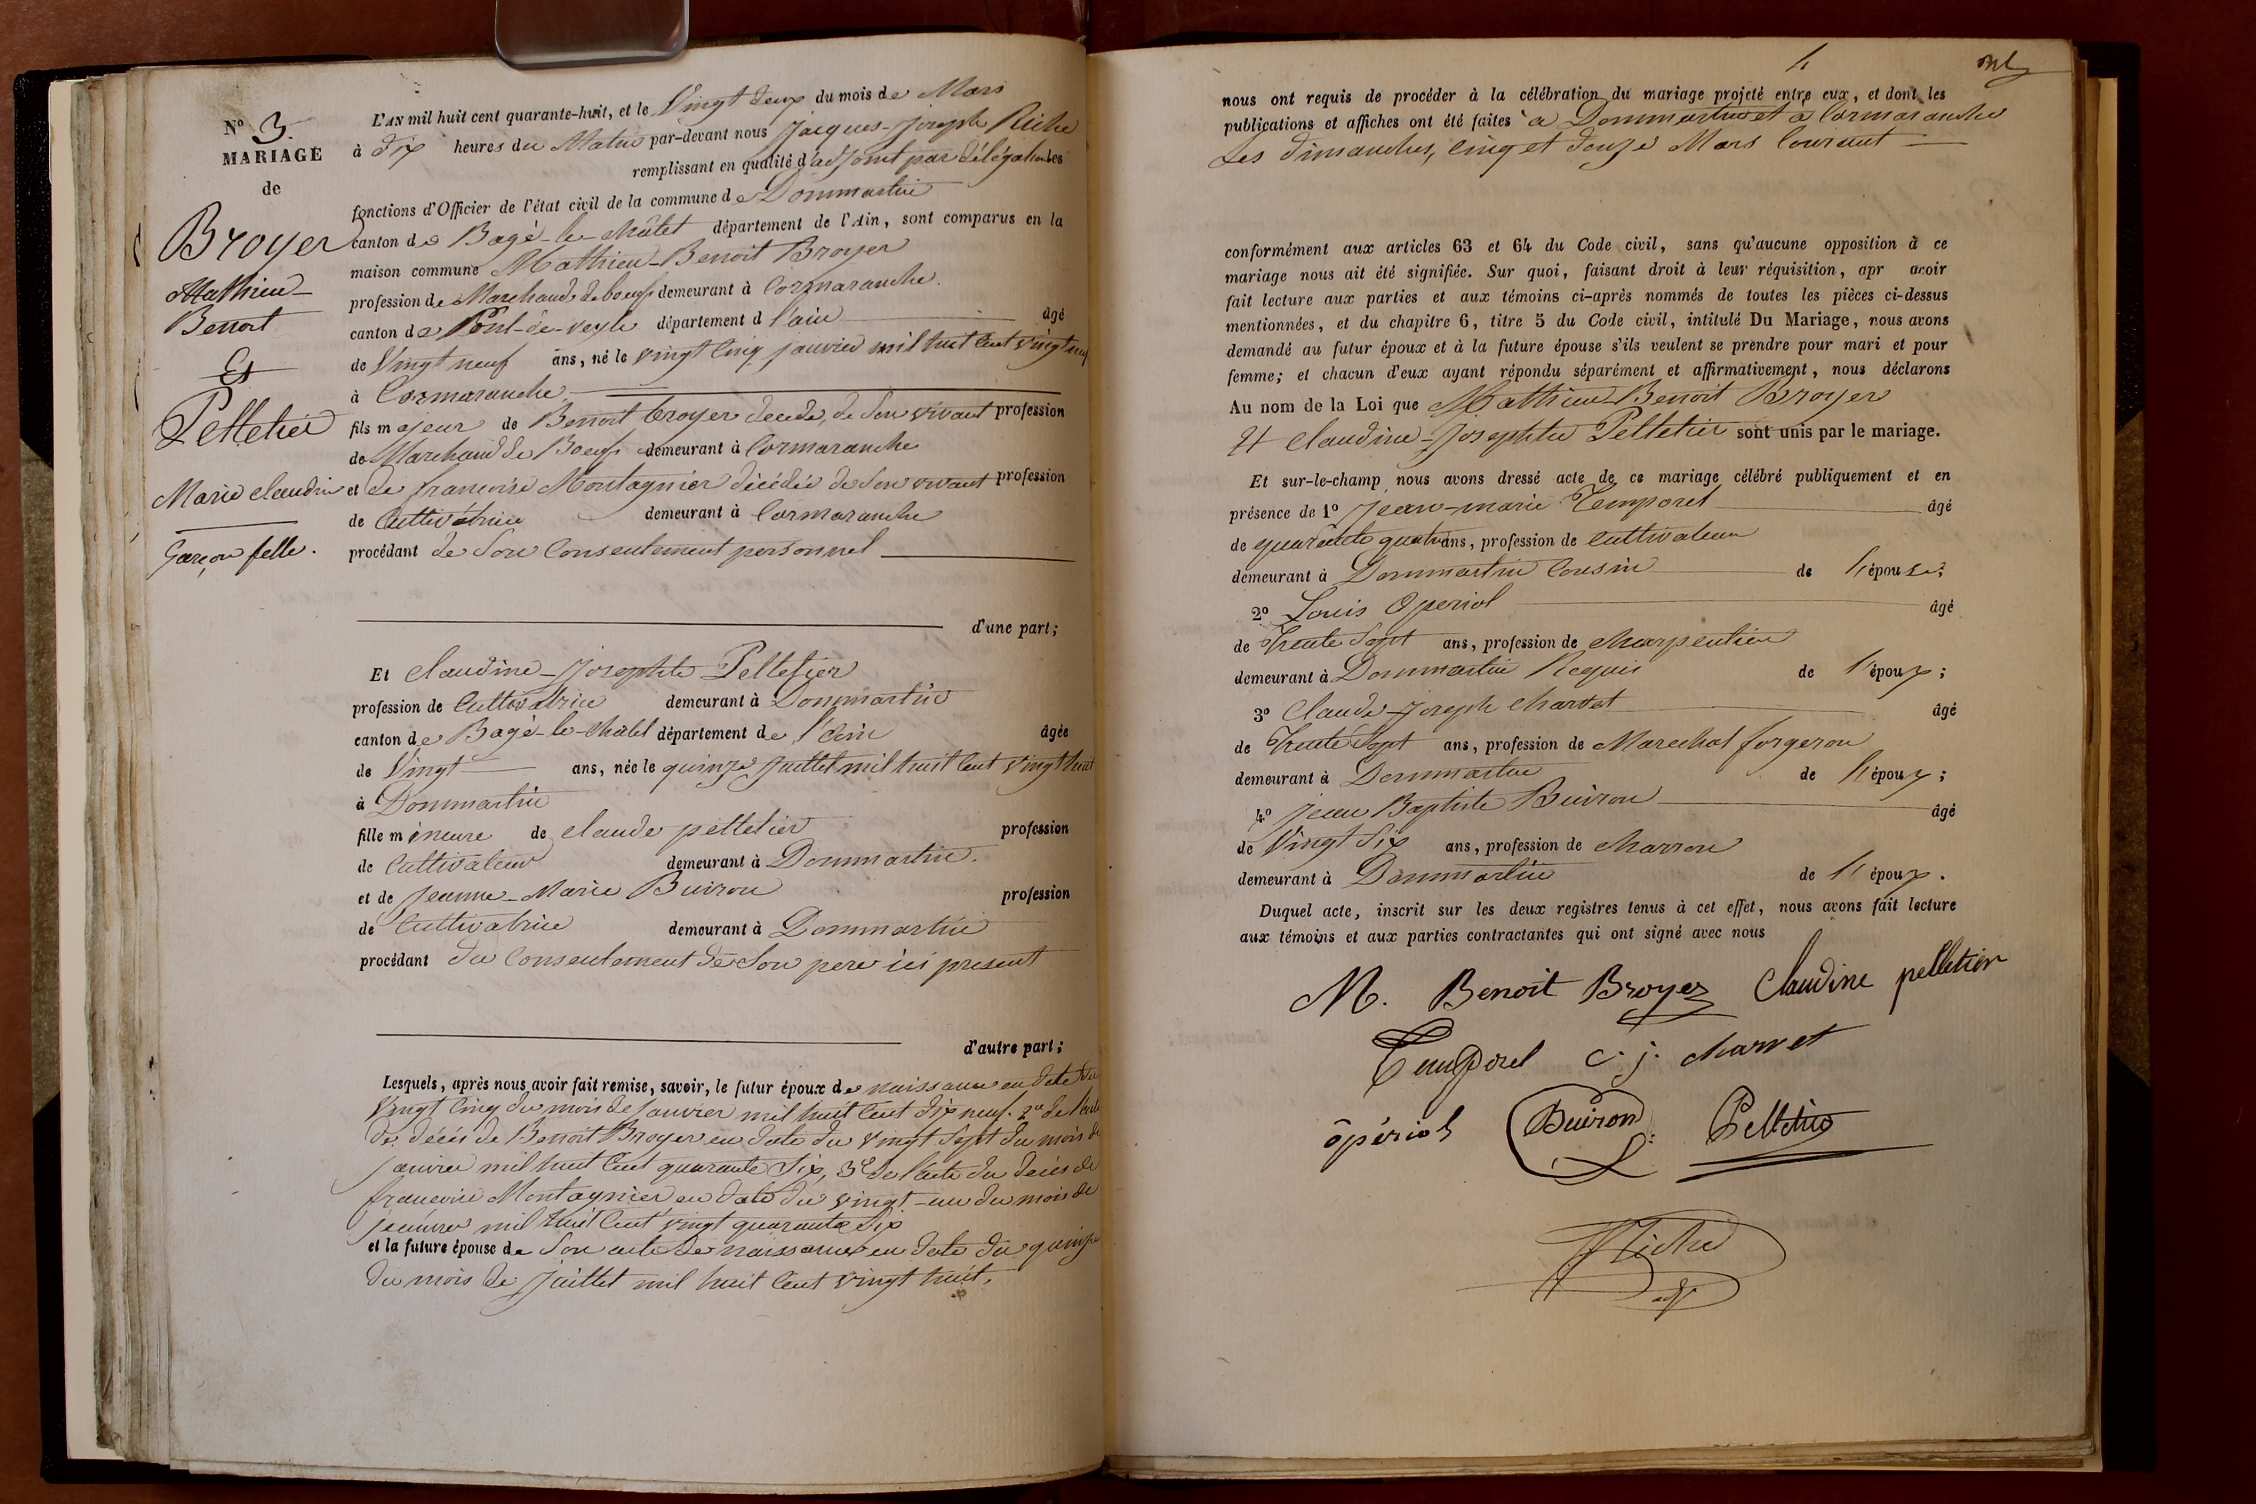 N° 3.
MARIAGE
de
Broyer
Mathieu-
Benoit
Et
Pelletier
Marie Claudine
Garçon fille.
L'AN mil huit cent quarante-huit, et le Vingt deux du mois de Mars
à dix heures du Matin par-devant nous Jacques-Joseph Riche
remplissant en qualité d'adjoint par délégation les
fonctions d'Officier de l'état civil de la commune de Dommartin
canton de Bagé-le-Châtel département de l'Ain, sont comparus en la
maison commune Mathieu-Benoit Broyer
profession de Marchand de boeufs demeurant à Cormaranche.
canton de Pont-de-veyle département d l'ain âgé
de Vingt neuf ans, né le vingt cinq janvier mil huit cent vingt neuf
à Cormaranche
fils majeur de Benoit broyer décédé, de Son vivant profession
de Marchand de Boeufs demeurant à Cormaranche
et de françoise Montagnier décédée de Son vivant profession
de Cultivatrice demeurant à Cormaranche
procédant de Son Consentement personnel
d'une part;
Et Claudine-Josephte Pelletier
profession de Cultivatrice demeurant à Dommartin
canton de Bagé-le-Châtel département de l'Ain âgée
de Vingt ans, née le quinze Juillet mil huit Cent Vingt huit
à Dommartin
fille mineure de Claude pelletier profession
de Cultivateur demeurant à Dommartin.
et de Jeanne-Marie Buiron profession
de Cultivatrice demeurant à Dommartin
procédant du Consentement de Son pere ici present
d'autre part;
Lesquels, après nous avoir fait remise, savoir, le futur époux de naissance en date du
Vingt Cinq du mois de Janvier mil huit Cent dix neuf. 2° de l'acte
de décès de Benoit Broyer en date du vingt Sept du mois de
janvier mil huit Cent quarante Six, 3° de l'acte du décès de
françoise Montagnier en date du vingt-un du mois de
janvier mil huit Cent vingt quarante Six
et la future épouse de Son acte de naissance en date du quinze
du mois de Juillet mil huit Cent vingt huit.
4
nous ont requis de procéder à la célébration du mariage projeté entre eux, et dont les
publications et affiches ont été faites à Dommartin et à Cormaranche
Les dimanches, Cinq et douze Mars Courant
conformément aux articles 63 et 64 du Code civil, sans qu'aucune opposition à ce
mariage nous ait été signifiée. Sur quoi, faisant droit à leur réquisition, apr avoir
fait lecture aux parties et aux témoins ci-après nommés de toutes les pièces ci-dessus
mentionnées, et du chapitre 6, titre 5 du Code civil, intitulé Du Mariage, nous avons
demandé au futur époux et à la future épouse s'ils veulent se prendre pour mari et pour
femme; et chacun d'eux ayant répondu séparément et affirmativement, nous déclarons
Au nom de la Loi que Mathieu Benoit Broyer
et Claudine-Josephte Pelletier sont unis par le mariage.
Et sur-le-champ nous avons dressé acte de ce mariage célébré publiquement et en
présence de 1° Jean-marie Temporel âgé
de quarante quatre ans, profession de Cultivateur
demeurant à Dommartin Cousin de l'épouse;
2° Louis Operiol âgé
de Trente Sept ans, profession de Charpentier
demeurant à Dommartin Requis de l'époux;
3° Claude-Joseph Charvet âgé
de Trente Sept ans, profession de Marechal forgeron
demeurant à Dommartin de l'époux;
4° Jean Baptiste Buiron âgé
de Vingt Six ans, profession de Charron
demeurant à Dommartin de l'époux.
Duquel acte, inscrit sur les deux registres tenus à cet effet, nous avons fait lecture
aux témoins et aux parties contractantes qui ont signé avec nous
M. Benoit Broyer Claudine pelletier
Temporel C. j. Charvet
ôpériol Buiron Pelletier
Riche
adj